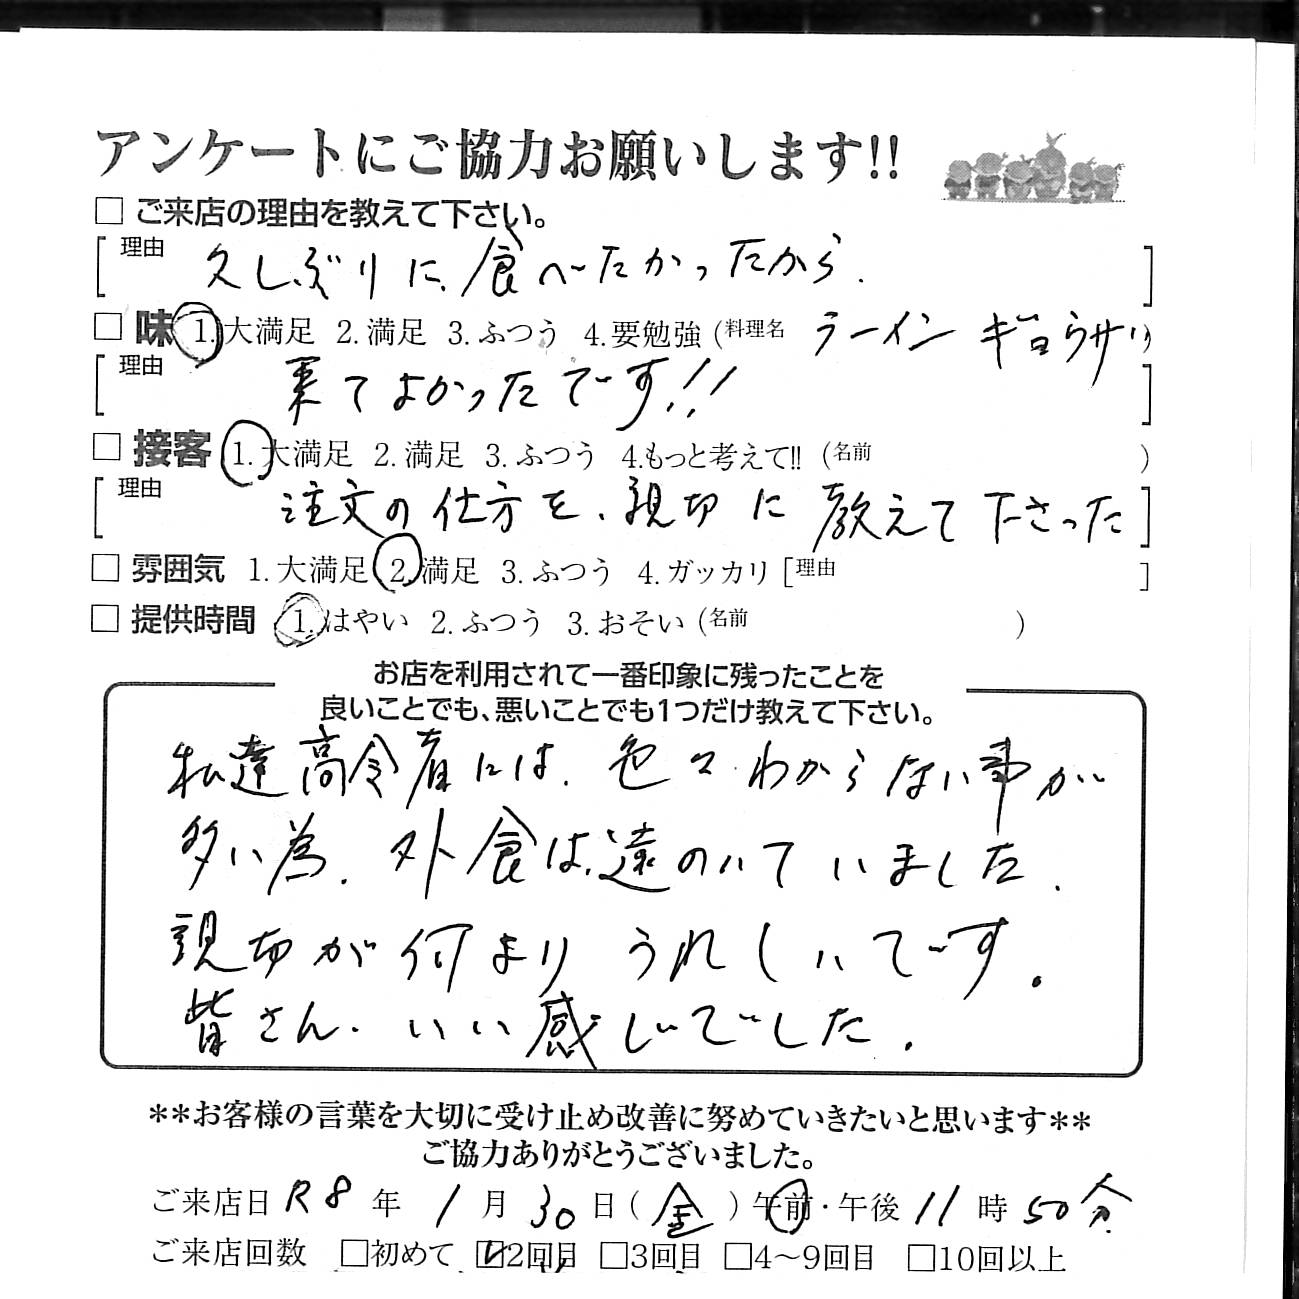 アンケートにご協力お願いします!!
□ ご来店の理由を教えて下さい。
[理由 久しぶりに、食べたかったたから.]
□ 味 1.大満足 2.満足 3.ふつう 4.要勉強 (料理名 ラーイン ギョウサリ)
[理由 来てよかったです!!]
□ 接客 1.大満足 2.満足 3.ふつう 4.もっと考えて!! (名前 )
[理由 注文の仕方を、親切に教えて下さった]
□ 雰囲気 1.大満足 2.満足 3.ふつう 4.ガッカリ [理由 ]
□ 提供時間 1.はやい 2.ふつう 3.おそい (名前 )
お店を利用されて一番印象に残ったことを
良いことでも、悪いことでも1つだけ教えて下さい。
私達高令者には、色々わからない事が
多い為、外食は、遠のいていました.
親切が何よりうれしいです。
皆さん.いい感じでした.
**お客様の言葉を大切に受け止め改善に努めていきたいと思います**
ご協力ありがとうございました。
ご来店日 R8年 1月 30日(金) 午前・午後 11時 50分
ご来店回数 □初めて ☑2回目 □3回目 □4〜9回目 □10回以上